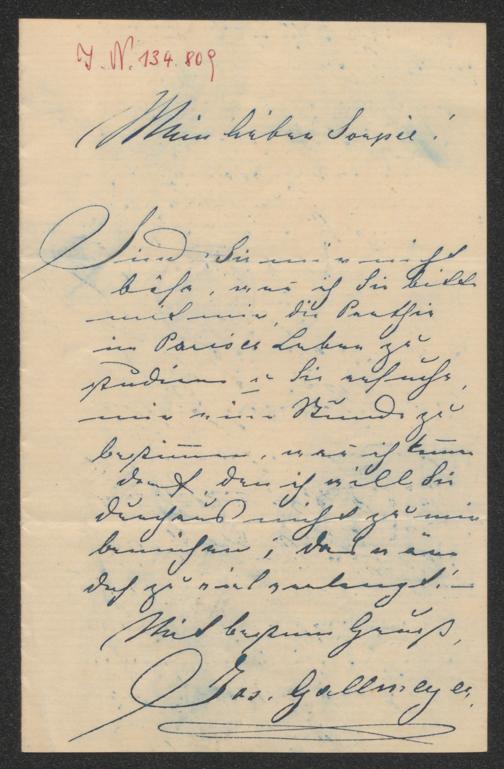 J. N. 134.809
Mein lieber
Sind Sie mir nicht
böse, wen ich Sie bitte
mit mir die Parthie
in Pariser Leben zu
studieren u Sie ersuche,
mir eine Stunde zu
bestimmen, wen ich kommen
darf den ich will Sie
durchaus nicht zu mir
bemühen; das wäre
doch zu viel verlangt! —
Mit bestem Gruß,
Jos. Gallmeyer.